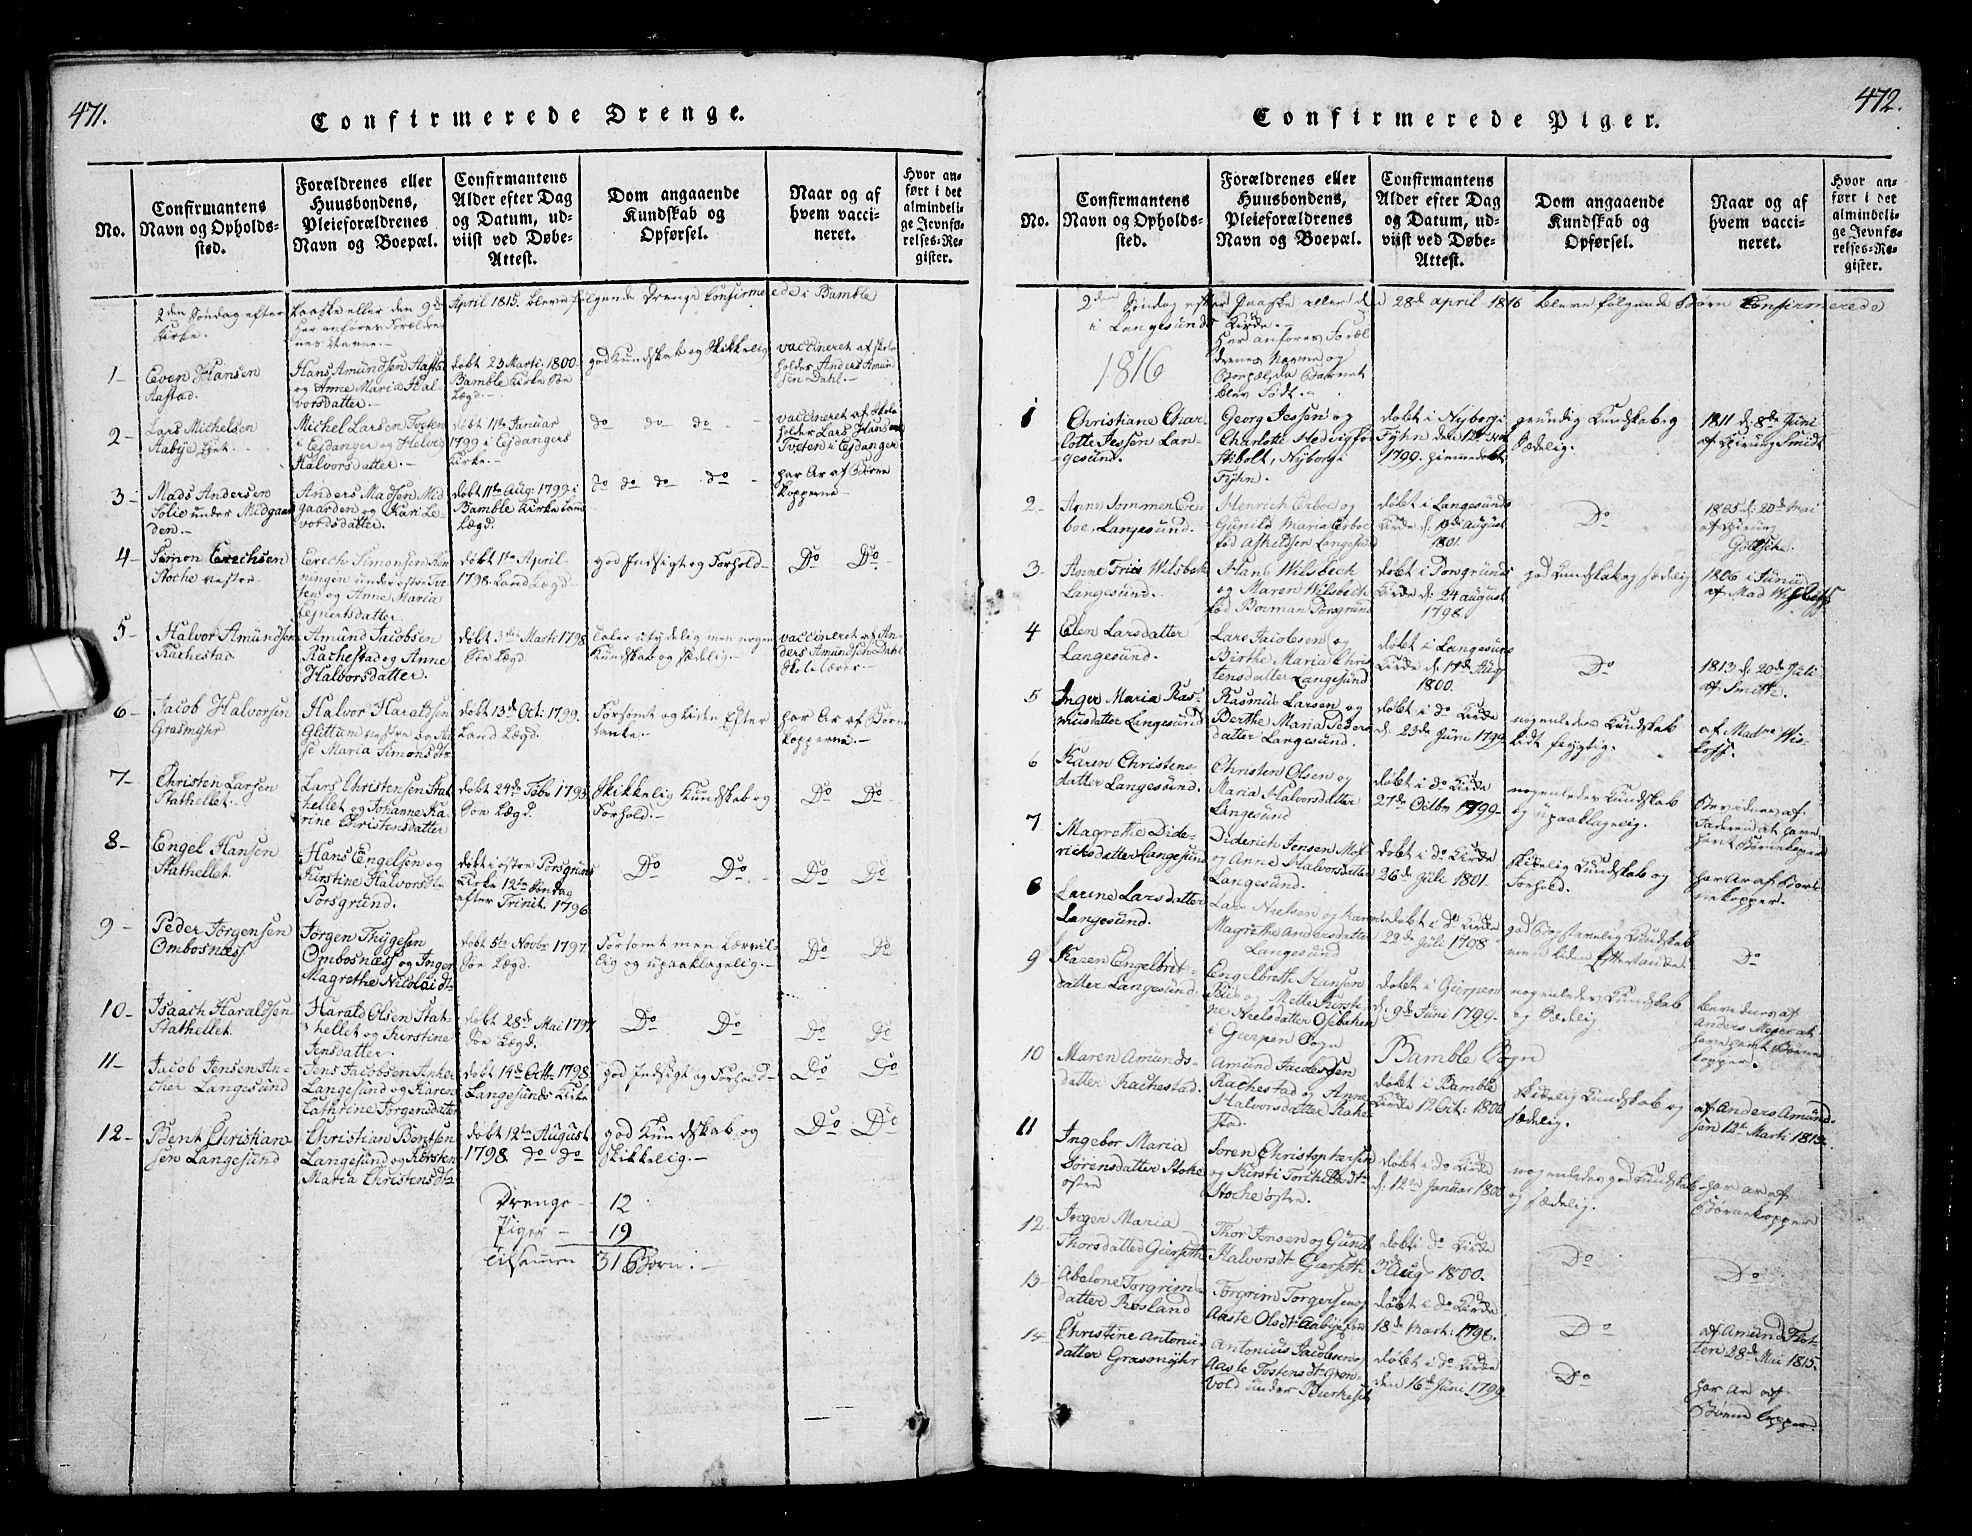 471.
Confirmerede Drenge.
No.
Confirmantens
Navn og Opholds-
sted.
Forældrenes eller
Huusbondens,
Pleieforældrenes
Navn og Boepæl.
Confirmantens
Alder efter Dag
og Datum, ud-
viist ved Døbe-
Attest.
Dom angaaende
Kundskab og
Opførsel.
Naar og af
hvem vacci-
neret.
Hvor an-
ført i det
almindeli-
ge Jevnfø-
relses-Re-
gister.
2den Søndag efter Paaske eller den 9de April 1815. bleve følgende Drenge Confirmerede i Bamble
Kirke.
her anføres Forældre
nes Navne.-
1-
Even Hansen
Aastad.
Hans Amundsen Aastad
og Anne Maria Hal-
vorsdatter.-
døbt 23 Marti 1800.
Bamble Kirke Søe
Lægd.-
god Kundskab og Skikkelig
vaccineret af Skole
holder Anders Amund
sen Dahl.-
2-
Lars Michelsen
Aabye
Michel Larsen Tveten
i Eydanger og Helvig
Halvorsdatter.-
døbt 11te Januar
1799 i Eydangers
Kirke.-
do do do -
vaccineret af Skole
holder Lars Hans
Tveten i Eydanger
3-
Mads Andersen
Solie under Midgaar
den.-
Anders Madsen Mid
gaarden og Kari Le-
vordsdatter.
døbt 11te Aug: 1799 i
Bamble Kirke
Lægd.
do do do do -
har Ar af Børne
Kopperne-
4-
Simon Erichsen
Stoche vestre
Erech Simonsen
ningen under østre Tve
ten og Anne Maria
Lejnertsdatter.
døbt 1te April
1798. Land Lægd
god Indsigt og Forhold-
Do Do-
5-
Halvor Amundsen
Rachestad.
Amund Jacobsen
Rachestad og Anne
Halvorsdatter.
døbt 3die Marti 1798
Søe Lægd.
taler utydelig men nogen
Kundskab og Sædelig.-
vaccineret af An-
ders Amundsen Dahl
Skolelærer.-
6-
Jacob Halvorsen
Grasmyhr
Halvor Haraldsen
Glittum vestre og
Maria Simonsdtr
døbt 13de Oct: 1799.
Land Lægd.
Forsømt og liden Efter
tanke.-
har Ar af Børne
kopperne.-
7-
Christen Larsen
Stathellet.
Lars Christensen Stat
hellet og Johanne Ka
rine Christensdatter
døbt 24de Febr 1793.
Søe Lægd.
Skikkelig Kundskab og
Forhold.-
Do Do-
8-
Engel Hansen
Stathellet
Hans Engelsen og
Kirstine Halvorsdtr
Porsgrund.
døbt i østre Porsgrunds
Kirke 12te Søndag
after Trinit. 1796
Do Do-
Do Do
9-
Peder Jørgensen
Ombosnæss
Jørgen Thygesen
Ombosnæss og Inger
Magrethe Nicolaidtr
døbt 5te Novbr 1797.
Søe Lægd.
Forsømt men Lærvil
lig og upaaklagelig.-
Do Do
10-
Isaach Haraldsen
Stathellet
Harald Olsen Stat-
hellet og Kirstine
Jensdatter.
døbt 28de Mai 1797.
Søe Lægd.
Do Do
Do Do
11-
Jacob Jensen An-
cher Langesund
Jens Jacobsen Anker
Langesund og Karen
Cathrine Jørgensdatter
døbt 14de Octb: 1798.
Langesunds Kirke
god Indsigt og Forhold-
Do Do
12-
Bent Christian-
sen Langesund
Christian Bentsen
Langesund og Kirsten
Maria Christensdtr
døbt 12te August
1798. do do
god Kundskab og
Skikkelig.-
Do Do
Drenge- 12
Piger - 19
Tilsammen 31 Børn.-
472.
Confirmerede Piger.
No.
Confirmantens
Navn og Opholds-
sted.
Forældrenes eller
Huusbondens,
Pleieforældrenes
Navn og Boepæl.
Confirmantens
Alder efter Dag
og Datum, ud-
viist ved Døbe-
Attest.
Dom angaaende
Kundskab og
Opførsel.
Naar og af
hvem vacci-
neret.
Hvor an-
ført i det
almindeli-
ge Jevnfø-
relses-Re-
gister.
2den Søndag efter Paaske eller den 28de april 1816 bleve følgende Børn Confirmerede
i Langesunds Kirke.
1816
Her anføres Foræl
drenes Navne og
Boepæl, da Barnet
blev Født.-
1
Christiane Char-
lotte Jessen Lan-
gesund.
Georg Jessen og
Charlotte Hedvig fød
Stibolt, Nyborg i
Fyhn.
døbt i Nyborg i
Fyhn den 12te
1799. hiemedøbt
grundig Kundskab og
Sædelig.
1811 d: 8de Juni
af Chirurg Smidt
2-
Anne Sommer Er-
boe, Langesund.
Henrich Erboe og
Gunild Maria Erboe
fød Aschildsen Langesund
døbt i Langesunds
Kirke d: 19de August
1801.
Do
1805 d: 20de Mai
af Chirurg
Gøttsche.
3-
Anne Wilsbech
Langesund.
Hans Wilsbech
og Maren Wilsbech
fød Boeman Porsgrund
døbt i Porsgrund
Kirke d: 24 august
1798.
god Kundskab og Sædelig
1806 i Junii
af Mad
4
Elen Larsdatter
Langesund.
Lars Jacobsen og
Birthe Maria Chris
tensdatter Langesund
døbt i Langesund
Kirke d: 17de Aug
1800.
Do
1813 d: 20de Juli
af Smith.
5
Inger Maria Ras-
musdatter Langesund
Rasmus Larsen og
Berthe Maria Peders
datter Langesund.
døbt i do Kirke
d: 23de Juni 1799
nogenledes Kundskab
lidt flygtig.
af Madme Wis-
loff.
6
Karen Christens-
datter Langesund.
Christen Olsen og
Maria Halvorsdatter
Langesund
døbt i do Kirke
27de Octbr 1799-
nogenledes Kundskab
og upaaklagelig.
Bevidnes af
Faderen at have
havt Børnekopper
7
Magrethe Dide-
richsdatter Langesund
Diderich Jensen Moss
og Anne Halvorsdatter
Langesund.
døbt i do Kirke
26de Juli 1801-
skikelig Kundskab og
Forhold.
har Ar af Bør-
nekopper.
8
Larine Larsdatter
Langesund.
Lars Nielsen og Karen
Magrethe Andersdatter
Langesund
døbt i do Kirke
22de Juli 1798
god Kundskab
men liden Eftertanke.
Do
9
Karen Engelbret-
datter Langesund.
Engelbreth Hansen
og Mette Kirsti-
ne Neelsdatter Osebaken
i Gierpen Sogn
døbt i Gierpen
d: 9de Juni 1799-
nogenledes Kundskab
og Sædelig
bevidnes af
Anders Meyer at
have havt Børne
kopper.
Bamble Sogn
10
Maren Amunds-
datter Rachestad.
Amund Jacobsen
Rachestad og Anne
Halvorsdatter Rache
stad.
døbt i Bamble
Kirke 12 Oct: 1800
skikelig Kundskab og
sædelig.
af Anders Amund-
sen 12te Marti 1815.
11
Ingebor Maria
Sørensdatter Stoke
østre
Søren Christophersen
og Kirsti Torchildsdtr
Stoche østre.
døbt i do Kirke
d: 12te Januar 1800
nogenledes god Kundskab
og sædelig.
har ar af
Børnekopper
12.
Inger Maria
Thorsdatter Gierseth
Thor Jensen og Gunil
Halvorsdtr Gierseth
døbt i do Kirke
3 Aug 1800.
Do
Do
13-
Abelone Torgrim-
datter Røsland
Torgrim Torgersen og
Aaste Olsdtr Aabye
døbt i do Kirke
18de Mart: 1798.
Do
af Amund Tvet-
ten 28de Mai 1815.
14-
Christine Antonii-
datter Grasmyhr
Antonius Jacobsen og
Aaste Tostensdtr Grøn-
vold under Bierkeset
døbt i do Kirke
den 16de Juni 1799
Do
har ar af
Børne Kopper